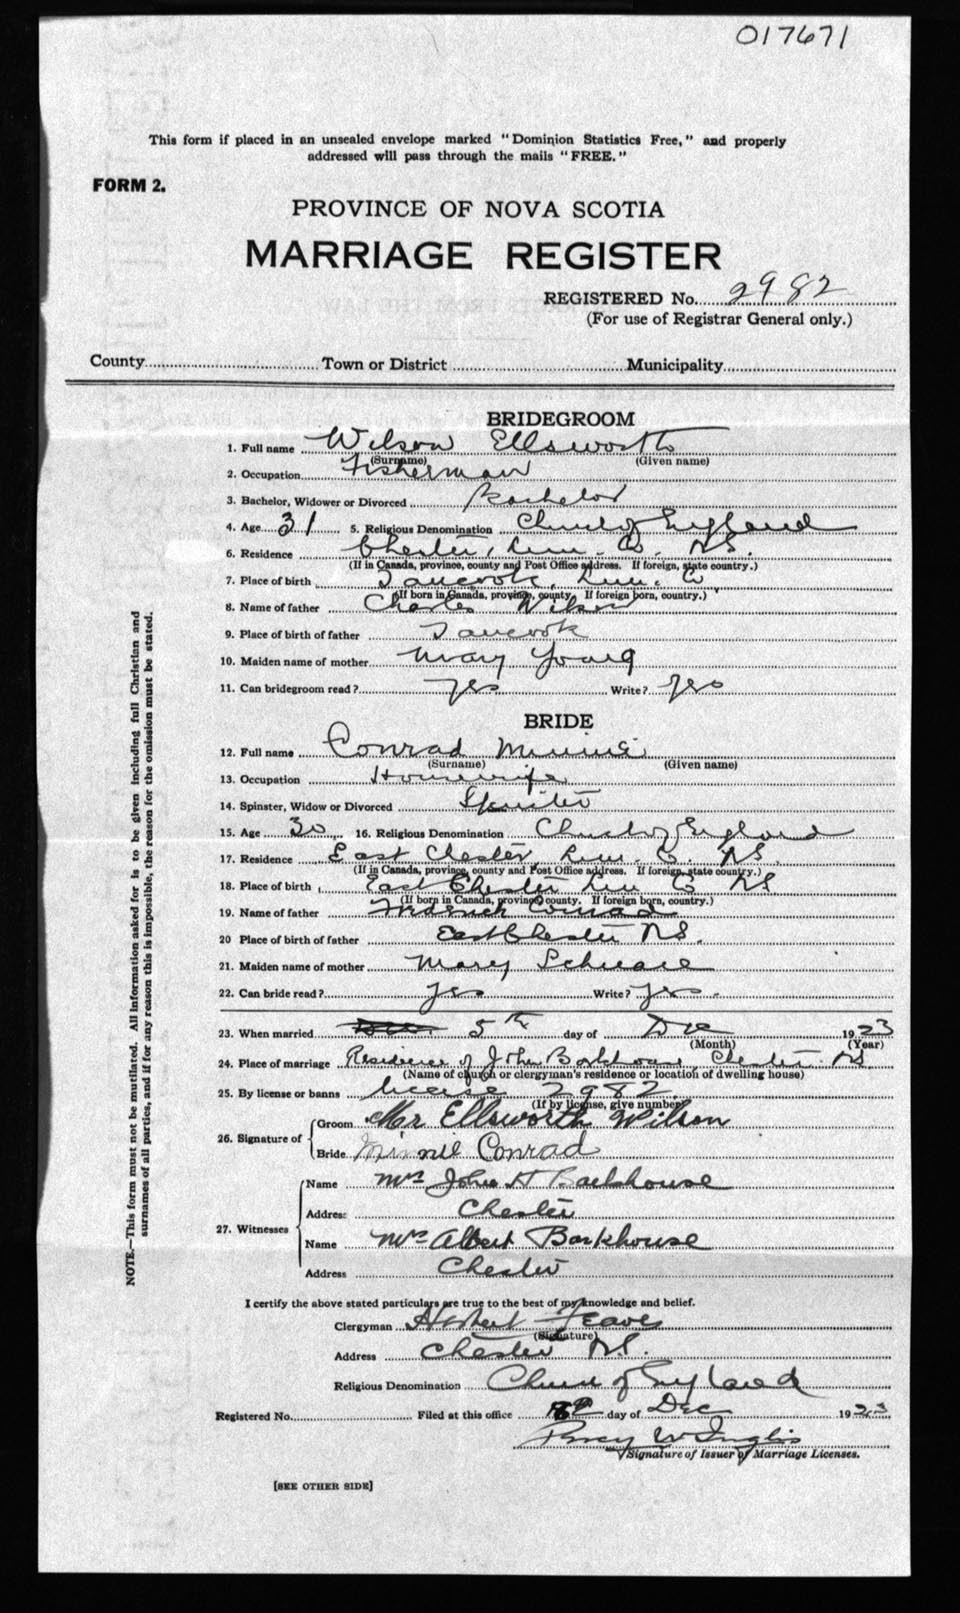 017671
This form if placed in an unsealed envelope marked "Dominion Statistics Free," and properly
addressed will pass through the mails "FREE."
FORM 2.
PROVINCE OF NOVA SCOTIA
MARRIAGE REGISTER
REGISTERED No. 2982
(For use of Registrar General only.)
County Town or District Municipality
BRIDEGROOM
1. Full name Wilson Ellsworth
(Surname) (Given name)
2. Occupation Fisherman
3. Bachelor, Widower or Divorced Bachelor
4. Age 31 5. Religious Denomination Church of England
6. Residence Chester, Lun. Co. N.S.
(If in Canada, province, county and Post Office address. If foreign, state country.)
7. Place of birth Tancook, Lun. Co
(If born in Canada, province, county. If foreign born, country.)
8. Name of father Charles Wilson
9. Place of birth of father Tancook
10. Maiden name of mother Mary Young
11. Can bridegroom read? Yes Write? Yes
BRIDE
12. Full name Conrad Minnie
(Surname) (Given name)
13. Occupation Housewife
14. Spinster, Widow or Divorced Spinster
15. Age 30 16. Religious Denomination Church of England
17. Residence East Chester, Lun. C. N.S.
(If in Canada, province, county and Post Office address. If foreign, state country.)
18. Place of birth East Chester Lun C NS
(If born in Canada, province, county. If foreign born, country.)
19. Name of father Frederick Conrad
20 Place of birth of father East Chester N.S.
21. Maiden name of mother Mary
22. Can bride read? yes Write? yes.
23. When married 5th day of Dec 1923
(Month) (Year)
24. Place of marriage Residence of John Barkhouse Chester N.S.
(Name of church or clergyman's residence or location of dwelling house)
25. By license or banns license 2982
(If by license, give number)
26. Signature of
Groom Mr Ellsworth Wilson
Bride Minnie Conrad
27. Witnesses
Name Mrs John H Barkhouse
Address Chester
Name Mrs Albert Barkhouse
Address Chester
I certify the above stated particulars are true to the best of my knowledge and belief.
Clergyman Herbert
(Signature)
Address Chester N.S.
Religious Denomination Church of England
Registered No. Filed at this office day of Dec 1923
Percy W Inglis
Signature of Issuer of Marriage Licenses.
[SEE OTHER SIDE]
NOTE.—This form must not be mutilated. All information asked for is to be given including full Christian and
surnames of all parties, and if for any reason this is impossible, the reason for the omission must be stated.